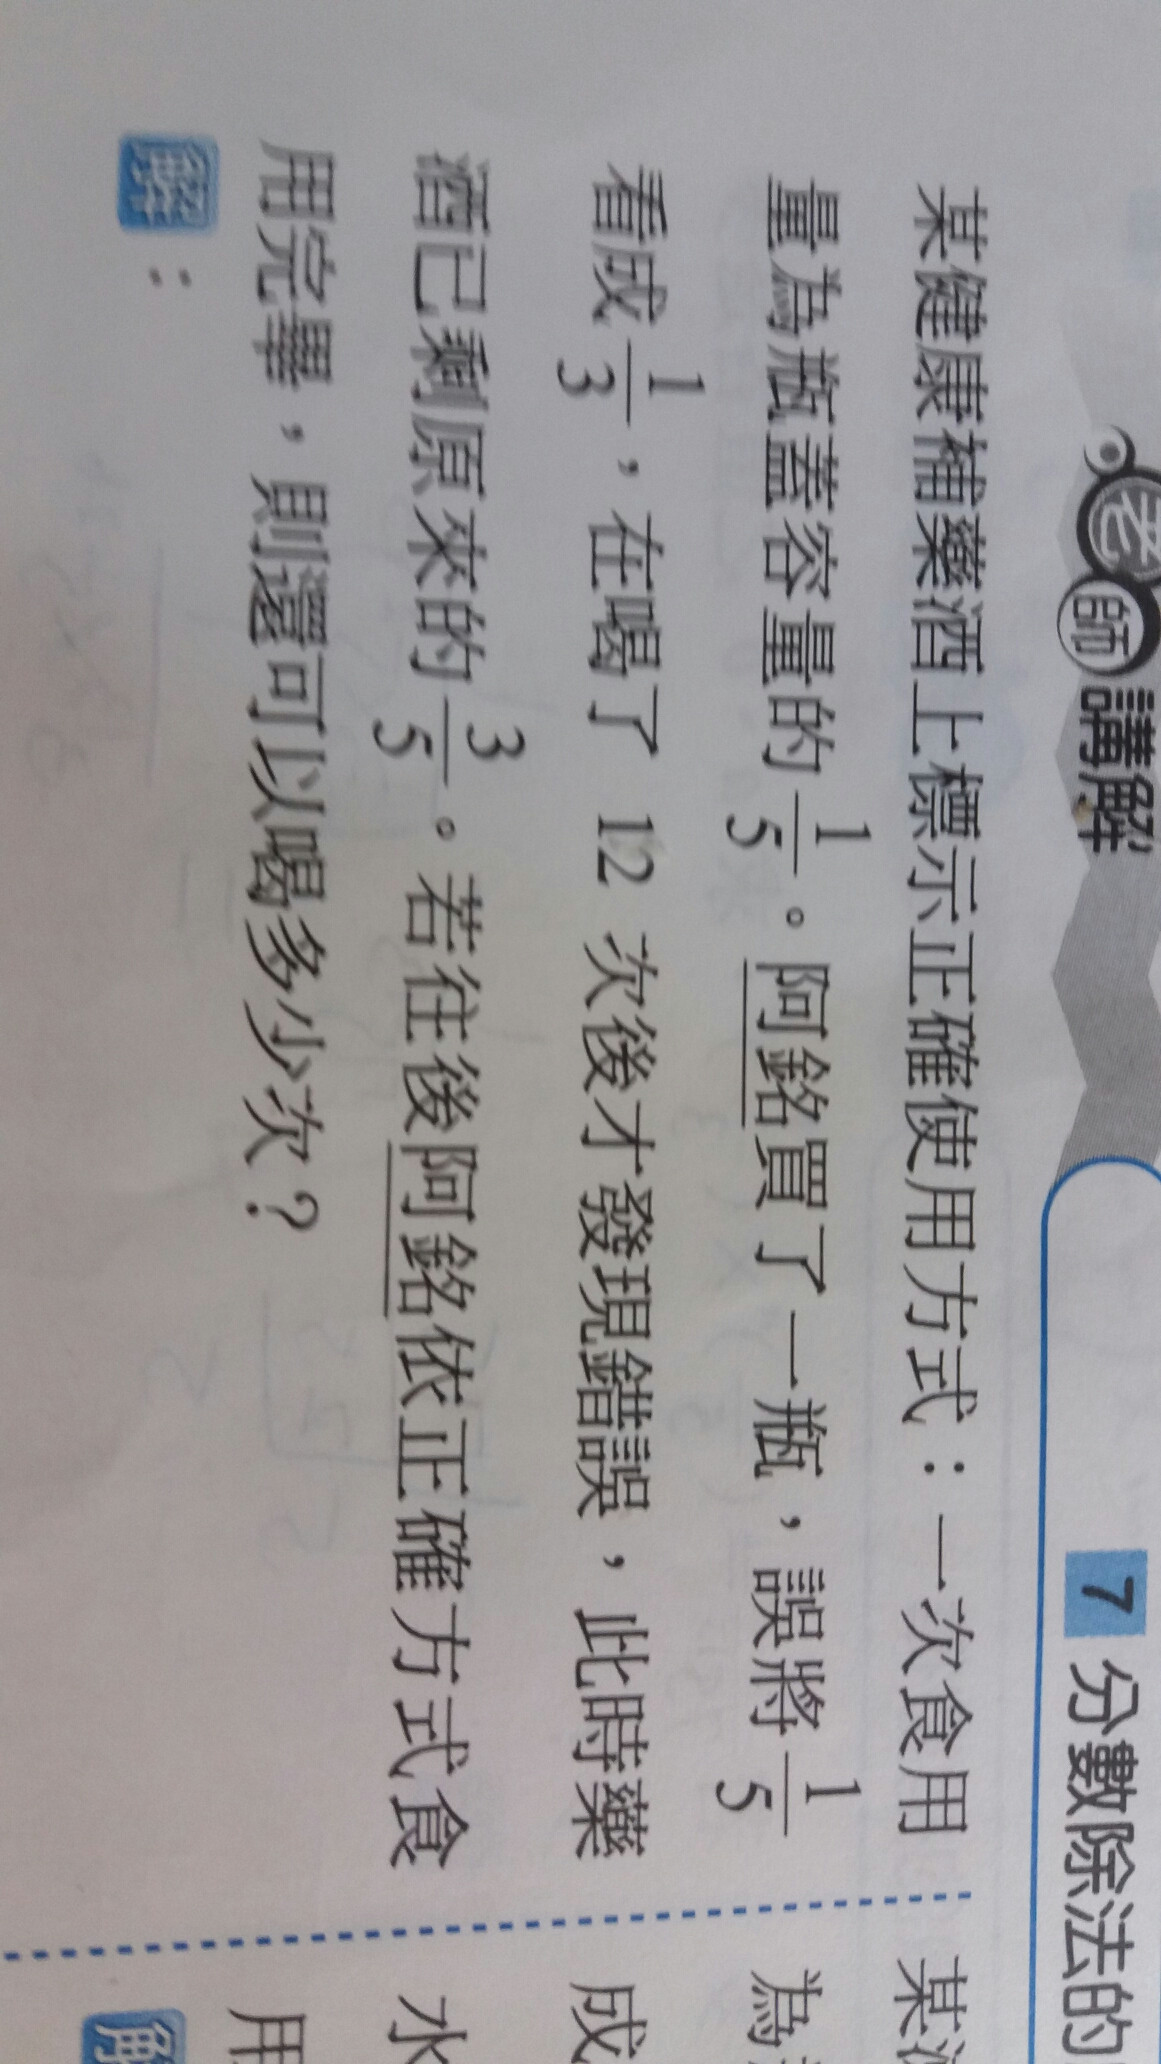 老師講解
7 分數除法的
某健康補藥酒上標示正確使用方式：一次食用
量為瓶蓋容量的1/5。阿銘買了一瓶，誤將1/5
看成1/3，在喝了 12 次後才發現錯誤，此時藥
酒已剩原來的3/5。若往後阿銘依正確方式食
用完畢，則還可以喝多少次？
解：
某
為
成
水
用
解